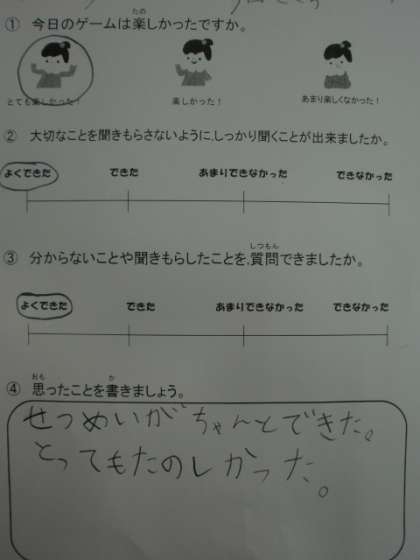 ① 今日のゲームは楽しかったですか。
たの
とても楽しかった！ 楽しかった！ あまり楽しくなかった！
② 大切なことを聞きもらさないように、しっかり聞くことが出来ましたか。
よくできた できた あまりできなかった できなかった
③ 分からないことや聞きもらしたことを、質問できましたか。
しつもん
よくできた できた あまりできなかった できなかった
④ 思ったことを書きましょう。
おも か
せつめいがちゃんとできた。
とってもたのしかった。